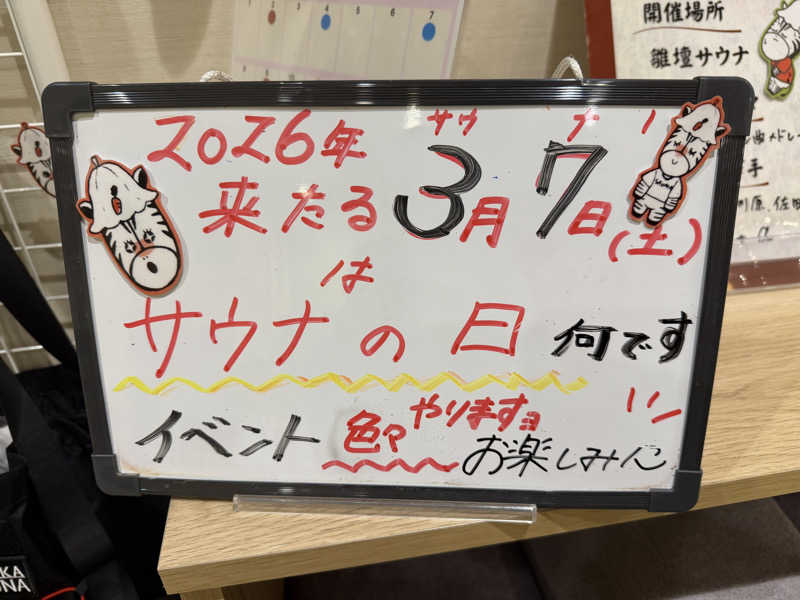 2026年
来たる
サウ ナ ノ
3月7日(土)
は
サウナの日 何です
イベント 色々やりますョ
お楽しみに
開催場所
雛壇サウナ
手
川原、佐
1 2 3 4 5 6 7